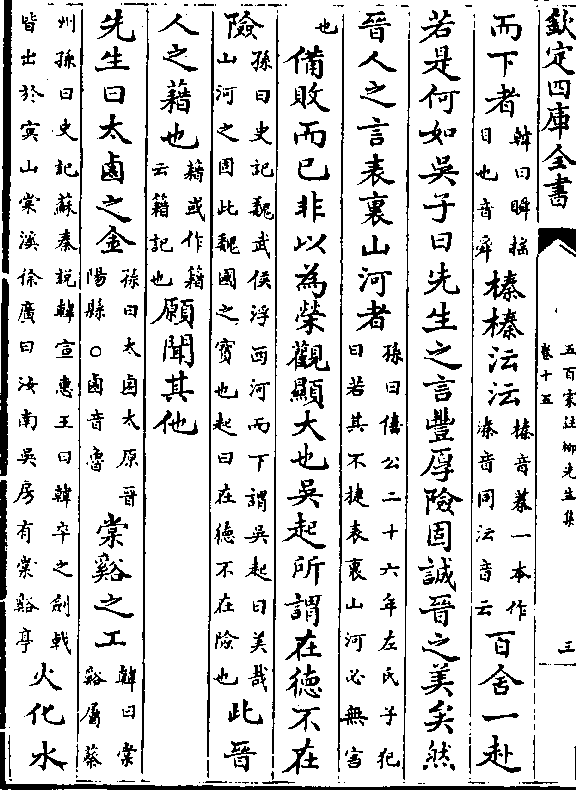 欽定四庫全書
五百家注柳先生集
卷十五
三
而下者韓曰瞬揺目也音舜榛榛沄沄榛音蓁一本作溱音同沄音云百舍一赴
若是何如吳子曰先生之言豐厚險固誠晉之美矣然
晉人之言表裏山河者孫曰僖公二十六年左氏子犯曰若其不捷表裏山河必無害
也備敗而已非以為榮觀顯大也吳起所謂在德不在
險孫曰史記魏武侯浮西河而下謂吳起曰美哉山河之固此魏國之寳也起曰在德不在險也此晉
人之藉也藉或作籍云籍記也願聞其他
先生曰太鹵之金孫曰太鹵太原晉陽縣○鹵音魯棠谿之工韓曰棠谿屬蔡
州孫曰史記蘇秦說韓宣惠王曰韓卒之劍戟皆出於㝠山棠溪徐廣曰汝南吳房有棠谿亭火化水